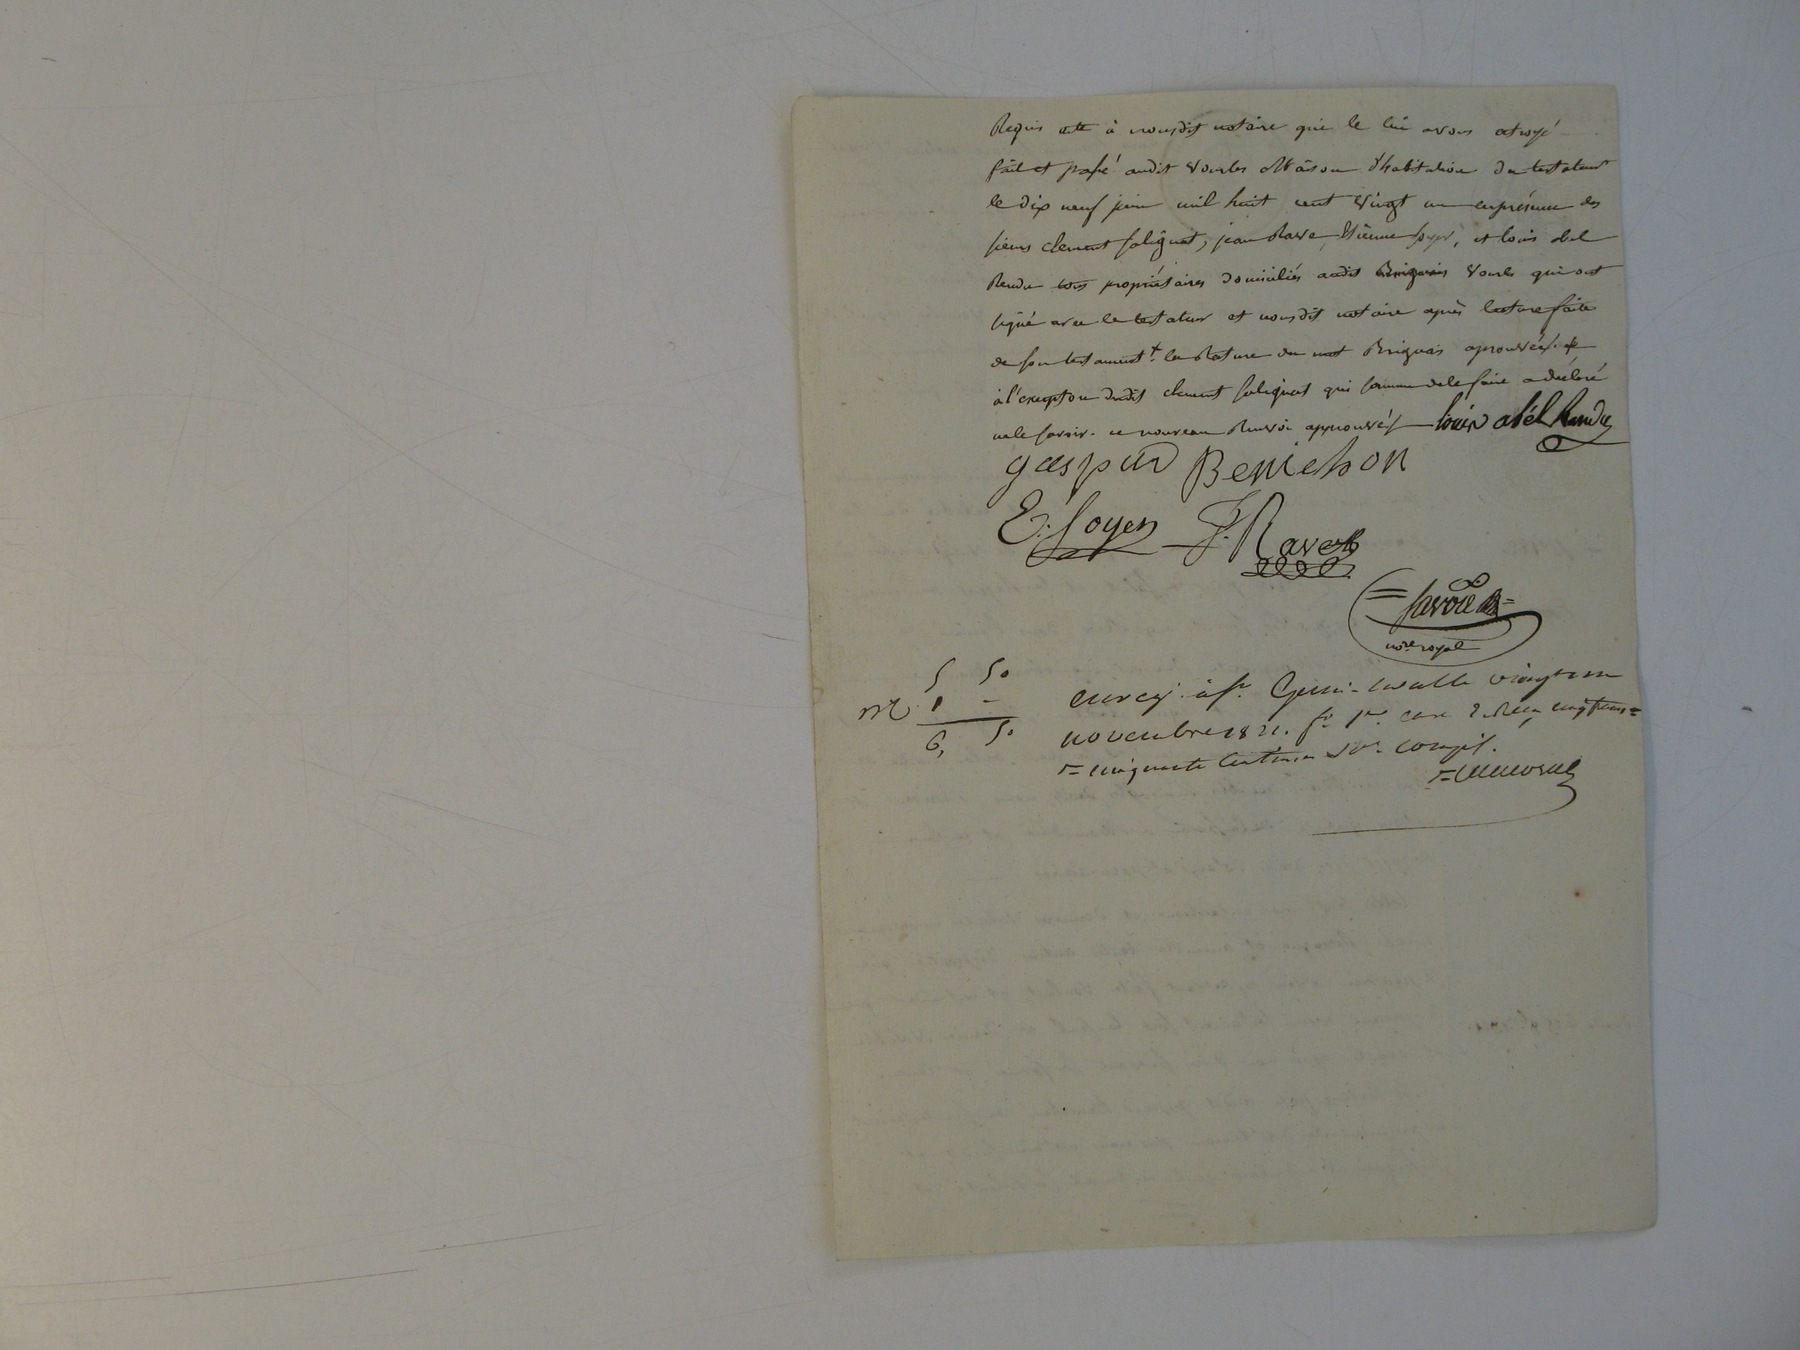 Requis acte à nousdit notaire que le lui avons atroyé
fait et passé audit Vourles Maison d'habitation du testateur
le dix neuf juin mil huit cent vingt un enprésence des
sieurs clement saliquat, jean Ravee, Etienne soyer, et louis abel
Rendu tous propriétaires domiciliés audit Brignais Vourles qui ont
signé avec le testateur et nousdit notaire après lecture faite
de son testament la Rature du mot Brignais aprouvée
à l'exception dudit clement saliquat qui sommé dele faire adéclaré
nele savoir. ce nouveau Renvoi approuvé louis abél Rendu
gaspar Benichon
E. Soyer J. Ravet
Savoie
no.re royal
5 50
M. 1 -
6, 50
enreg. à St. Geni-Lavalle vingt un
novembre 1821. f° case 2. Reçu cinq francs
cinquante centimes compis.